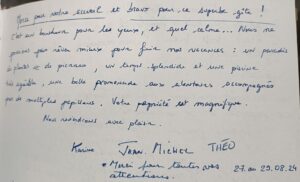 Merci pour votre accueil et bravo pour ce superbe gîte !
C'est un bonheur pour les yeux, et quel calme... Nous ne
pouvions pas rêver mieux pour finir nos vacances : un paradis
de plantes et de pierres, un temps splendide et une piscine
très agréable, une belle promenade aux alentours accompagnés
par de multiples papillons. Votre propriété est magnifique.
Nous reviendrons avec plaisir.
Karine JEAN-MICHEL THÉO
• Merci pour toutes vos attentions.
27 au 29.08.24